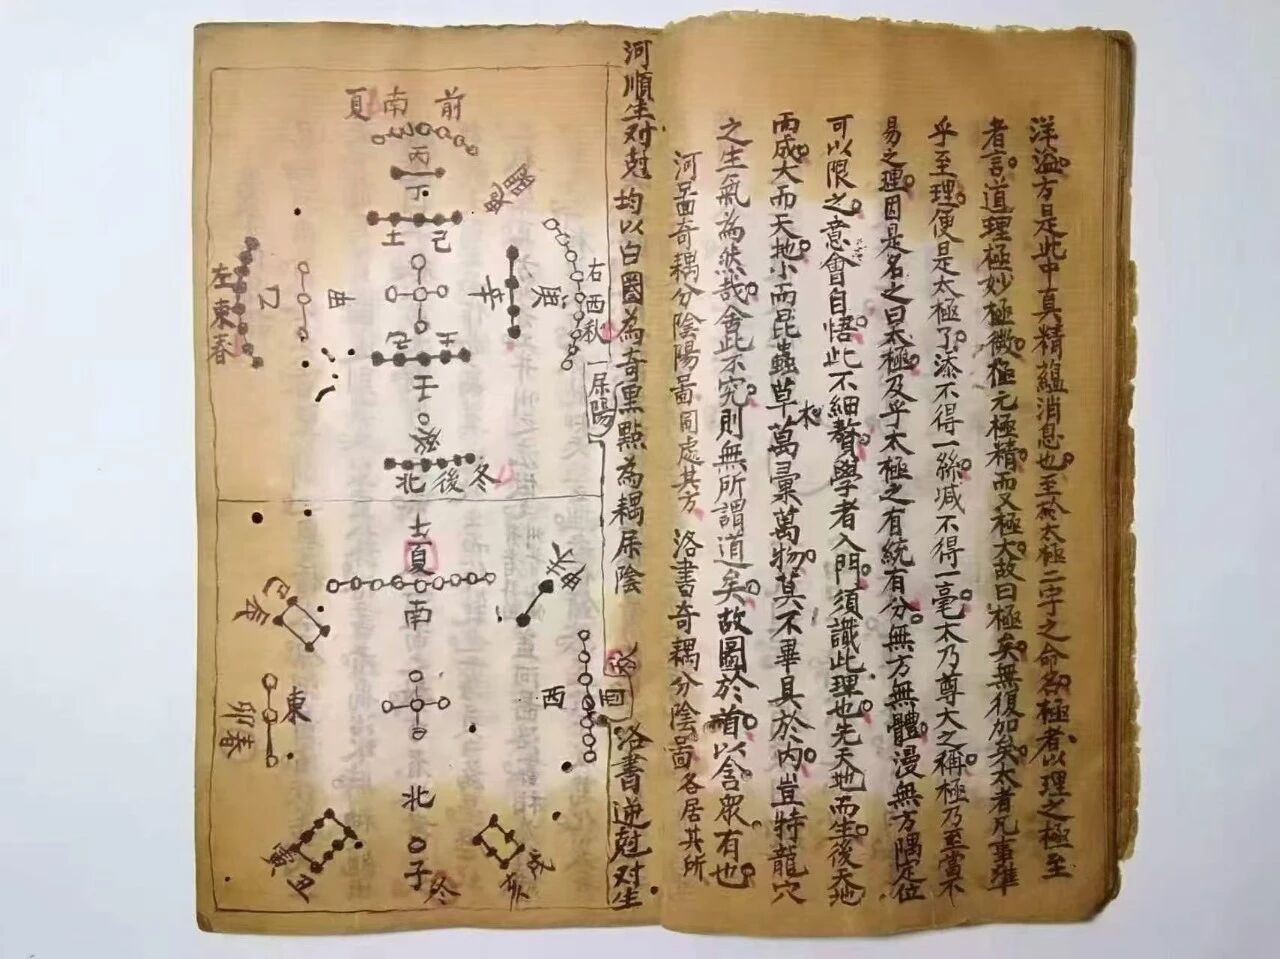 洋溢方是此中真精蘊消息也至於太極二字之命名極者以理之極至
者言道理極妙極微極元極精而又極大故曰極矣無復加矣太者凡事雖
乎至理便是太極了添不得一絲减不得一毫太乃尊大之稱極乃至當不
易之理因是名之曰太極及乎太極之有統有分無方無體漫無方隅定位
可以限之意會自悟此不細贅學者入門須識此理也先天地而生後天地
而成大而天地小而昆蟲草木萬彙萬物莫不畢具於內豈特龍穴
之生氣為然哉舍此不究則無所謂道矣故圖於首以含眾有也
河啚奇耦分陰陽啚同處其方 洛書奇耦分陰啚各居其所
河順生对尅均以白圈為奇黑點為耦屌陰 洛書逆尅对生
一屌陽
前
南
夏
丙
丁
土 己
辛
庚
右西秋
左東春
乙
甲
壬
癸
北 後 冬
夏
南
巳
辰
西
東
卯
春
北
子
冬
丑
戌